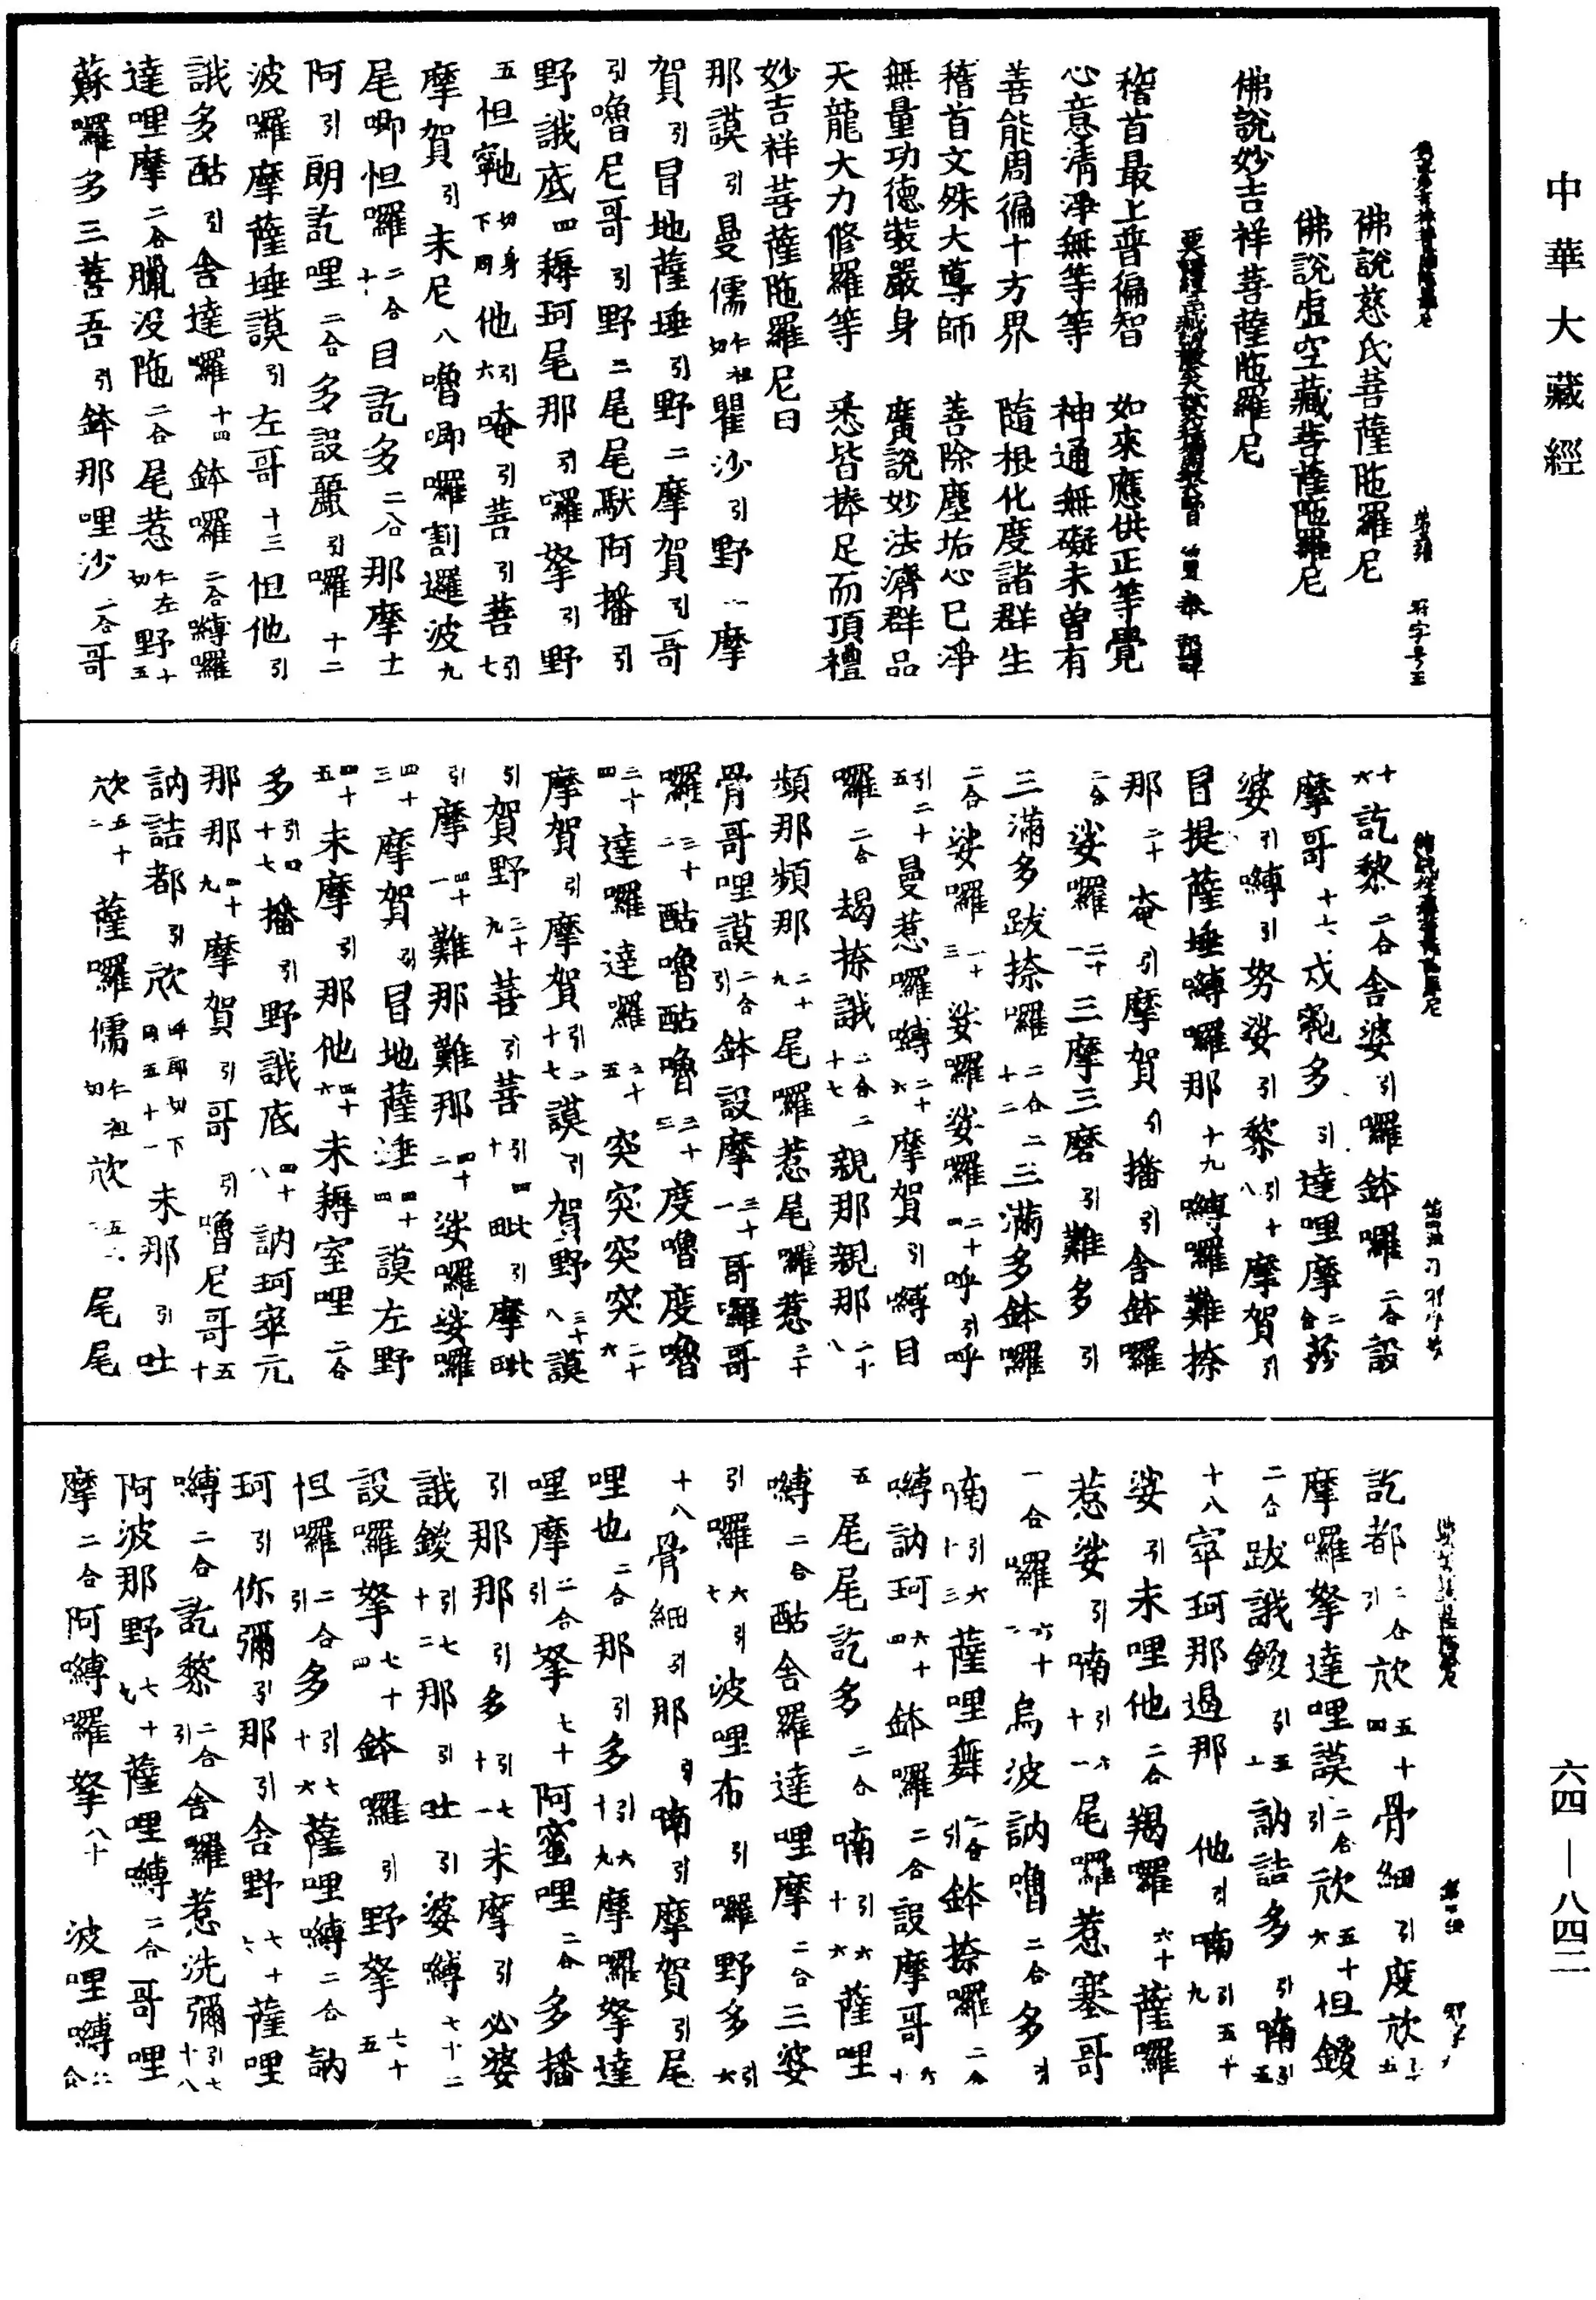 中華大藏經
佛說慈氏菩薩陁羅尼
佛說虛空藏菩薩陁羅尼
佛說妙吉祥菩薩陁羅尼
稽首最上普徧智 如來應供正等覺
心意清淨無等等 神通無礙未曾有
善能周徧十方界 隨根化度諸群生
稽首文殊大導師 善除塵垢心已淨
無量功德裝嚴身 廣說妙法濟群品
天龍大力修羅等 悉皆捧足而頂禮
妙吉祥菩薩陁羅尼曰
那謨引曼儒仁祖切瞿沙引野一摩
賀引冒地薩埵引野二摩賀引哥
引嚕尼哥引野三尾尾馱阿播引
野誐底四耨珂尾那引囉拏引野
五怛寧也切身下同他引六唵引菩引菩引七
摩賀引末尼八嚕唧囉割邏波九
尾唧怛囉二合十目訖多二合那摩十
阿引朗訖哩二合多設嚴引囉十二
波囉摩薩埵謨引左哥十三怛他引
誐多酤引舍達囉十四鉢囉二合嚩囉
達哩摩二合臘沒陁二合尾惹仁左切野十五
蘇囉多三菩吾引鉢那哩沙二合哥
十六訖黎二合舍婆引囉鉢囉二合設
摩哥十七戍寧也多引達哩摩二合莎
婆引嚩引努娑引黎引十八摩賀引
冒提薩埵嚩囉那十九嚩囉難捺
那二十唵引摩賀引播引舍鉢囉
二合娑囉二十一三摩三磨引難多引
三滿多跋捺囉二合二十二三滿多鉢囉
二合娑囉二十三娑囉娑囉二十四呼引呼
引二十五曼惹囉嚩二十六摩賀引嚩目
囉二合朅捺誐二合二十七親那親那二十八
頻那頻那二十九尾囉惹尾囉惹三十
骨哥哩謨二合引鉢設摩三十一哥囉哥
囉三十二酤嚕酤嚕三十三度嚕度嚕
三十四達囉達囉三十五突突突突三十六
摩賀引摩賀引三十七謨引賀野三十八謨
引賀野三十九菩引菩引四十毗引摩毗
引摩四十一難那難那四十二娑囉娑囉
四十三摩賀引冒地薩埵四十四謨左野
四十五末摩引那他四十六末耨室哩二合
多引四十七播引野誐底四十八訥珂宰元
那那四十九摩賀引哥引嚕尼哥五十
訥詰都引欣呼郎切下同五十一末那引吐
欣五十二薩囉儒仁祖切欣五十三尾尾
訖都二合引欣五十四骨細引度欣五十五
摩囉拏達哩謨二合引欣五十六怛鑁
二合跋誐鑁引五十七訥詰多引喃引五
十八宰珂那遏那 他引喃引五十九
娑引末哩他二合羯囉六十薩囉
惹娑引喃引六十一尾囉惹塞哥
二合囉六十二烏波訥嚕二合多引
喃引六十三薩哩舞二合引鉢捺囉二合
嚩訥珂六十四鉢囉二合設摩哥六十
五尾尾訖多二合喃引六十六薩哩
嚩二合酤舍羅達哩摩二合三婆
引囉六引七波哩布引囉野多引六
十八骨細引那引喃引摩賀引尾
哩也二合那引多引六十九摩囉拏達
哩摩二合引拏七十阿蜜哩二合多播
引那那引多引七十一末摩引必婆
誐鑁引七十二那引吐引婆嚩七十二
設囉拏七十四鉢囉引野拏七十五
怛囉二合引多引七十六薩哩嚩二合訥
珂引你彌引那引舍野七十七薩哩
嚩二合訖黎二合引舍羅惹洗彌引七十八
阿波那野七十九薩哩嚩二合哥哩
摩二合阿嚩囉拏八十波哩嚩二合
六四—八四二